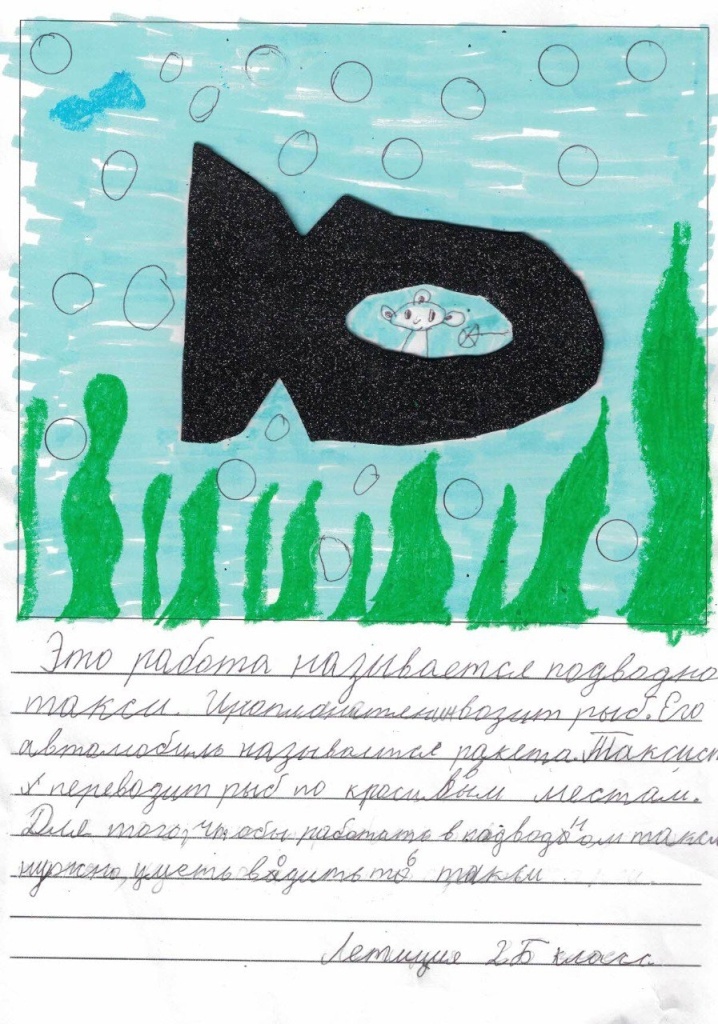 Это работа называется подводно
такси. Инопланетянин возит рыб. Его
автомобиль называется ракета. Таксист
переводит рыб по красивым местам.
Для того, чтобы работать в подводном такси
нужно уметь водить то такси
Летиция 2 Б класс